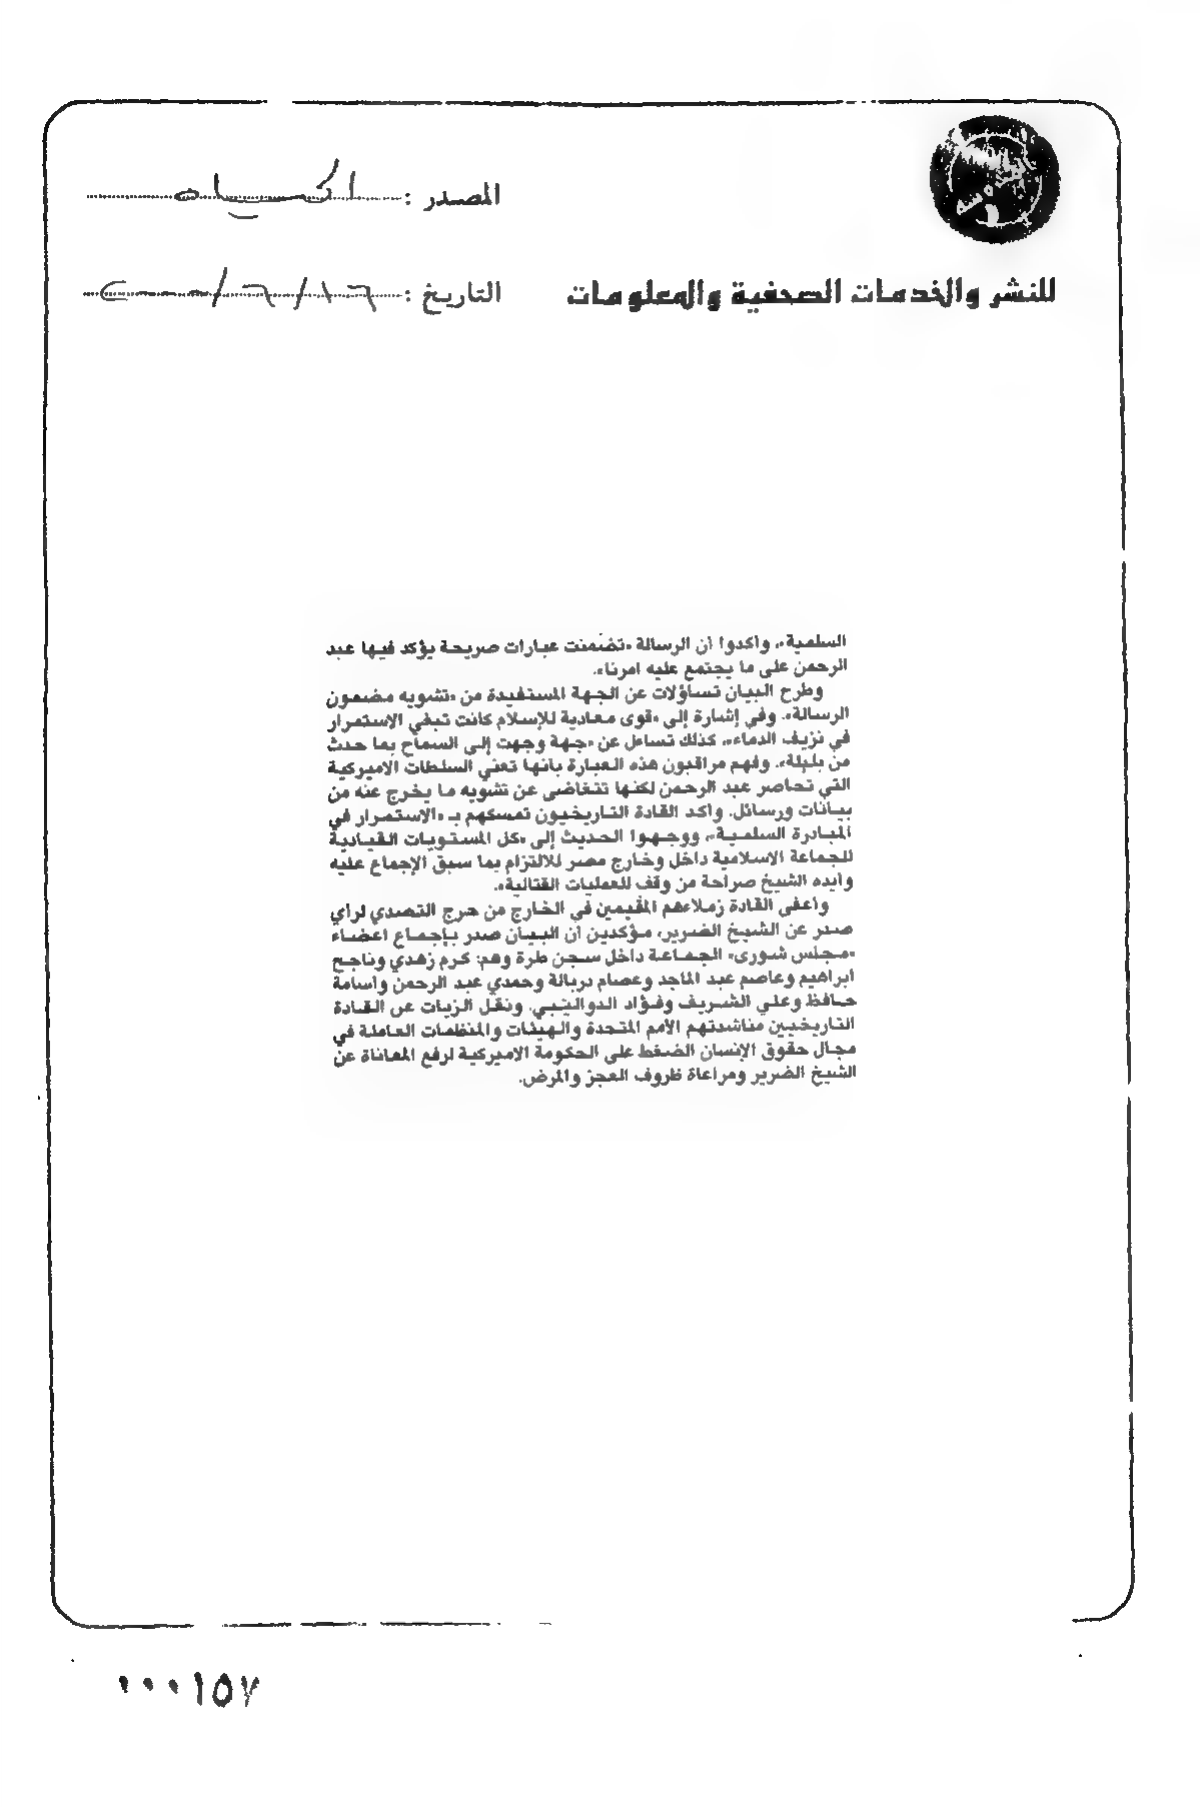 المصدر : الحياه
للنشر والخدمات الصحفية والمعلومات
التاريخ : ٢٠٠٠/٦/١٦
السلمية»، وأكدوا أن الرسالة «تضمنت عبارات صريحة يؤكد فيها عبد
الرحمن على ما يجتمع عليه امرنا».
وطرح البيان تساؤلات عن الجهة المستفيدة من «تشويه مضمون
الرسالة». وفي إشارة إلى «قوى معادية للإسلام كانت تبغي الاستمرار
في نزيف الدماء»، كذلك تساءل عن «جهة وجهت إلى السماح بما حدث
من بلبلة». وفهم مراقبون هذه العبارة بانها تعني السلطات الاميركية
التي تحاصر عبد الرحمن لكنها تتغاضى عن تشويه ما يخرج عنه من
بيانات ورسائل. وأكد القادة التاريخيون تمسكهم بـ «الاستمرار في
المبادرة السلمية»، ووجهوا الحديث إلى «كل المستويات القيادية
للجماعة الاسلامية داخل وخارج مصر للالتزام بما سبق الإجماع عليه
وأيده الشيخ صراحة من وقف للعمليات القتالية».
وأعفى القادة زملاءهم المقيمين في الخارج من حرج التصدي لرأي
صدر عن الشيخ الضرير، مؤكدين أن البيان صدر بإجماع اعضاء
«مجلس شورى» الجماعة داخل سجن طرة وهم: كرم زهدي وناجح
ابراهيم وعاصم عبد الماجد وعصام دربالة وحمدي عبد الرحمن وأسامة
حافظ وعلي الشريف وفؤاد الدواليبي. ونقل الزيات عن القادة
التاريخيين مناشدتهم الأمم المتحدة والهيئات والمنظمات العاملة في
مجال حقوق الإنسان الضغط على الحكومة الاميركية لرفع المعاناة عن
الشيخ الضرير ومراعاة ظروف العجز والمرض.
٠٠٠١٥٧